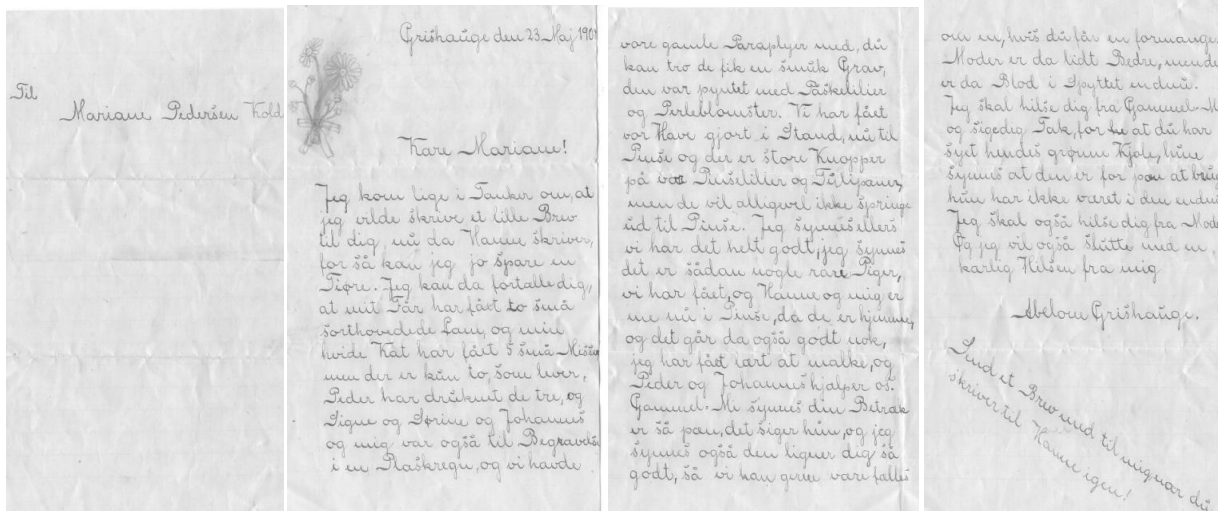 Til
Mariane Pedersen Kold
Grishauge den 23 Maj 1901
Kære Mariane!
Jeg kom lige i Tanker om, at
jeg vilde skrive et lille Brev
til dig, nu da Hanne skriver,
for så kan jeg jo spare en
Tiøre. Jeg kan da fortælle dig,
at mit Får har fået to små
sorthovedede Lam, og min
hvide Kat har fået 5 små Misser
men der er kun to, som lever,
Peder har druknet de tre, og
Signe og Dorine og Johannes
og mig var også til Begravelse
i en Plaskregn, og vi havde
vore gamle Paraplyer med, du
kan tro de fik en smuk Grav,
den var pyntet med Påskelilier
og Perleblomster. Vi har fået
vor Have gjort i Stand, nu til
Pinse og der er store Knopper
på vor Pinselilier og Tulipaner,
men de vil alligevel ikke springe
ud til Pinse. Jeg synes ellers
vi har det helt godt, jeg synes
det er sådan nogle rare Piger,
vi har fået, og Hanne og mig er
ene nu i Pinse, da de er hjemme,
og det går da også godt nok,
jeg har fået lært at malke, og
Peder og Johannes hjælper os.
Gammel-Mo synes din Betræk
er så pæn, det siger hun, og jeg
synes også den ligner dig så
godt, så vi kan gerne være fælles
om en, hvis du får en formange
Moder er da lidt Bedre, men de
er da Blod i Spyttet endnu.
Jeg skal hilse dig fra Gammel-M
og sige dig Tak, for at du har
syet hendes grønne Kjole, hun
synes at den er for pæn at brug
hun har ikke været i den endnu
Jeg skal også hilse dig fra Mode
Og jeg vil også slutte med en
kærlig Hilsen fra mig
Abelone Grishauge.
Send et Brev med til mig, når du
skriver til Hanne igen!